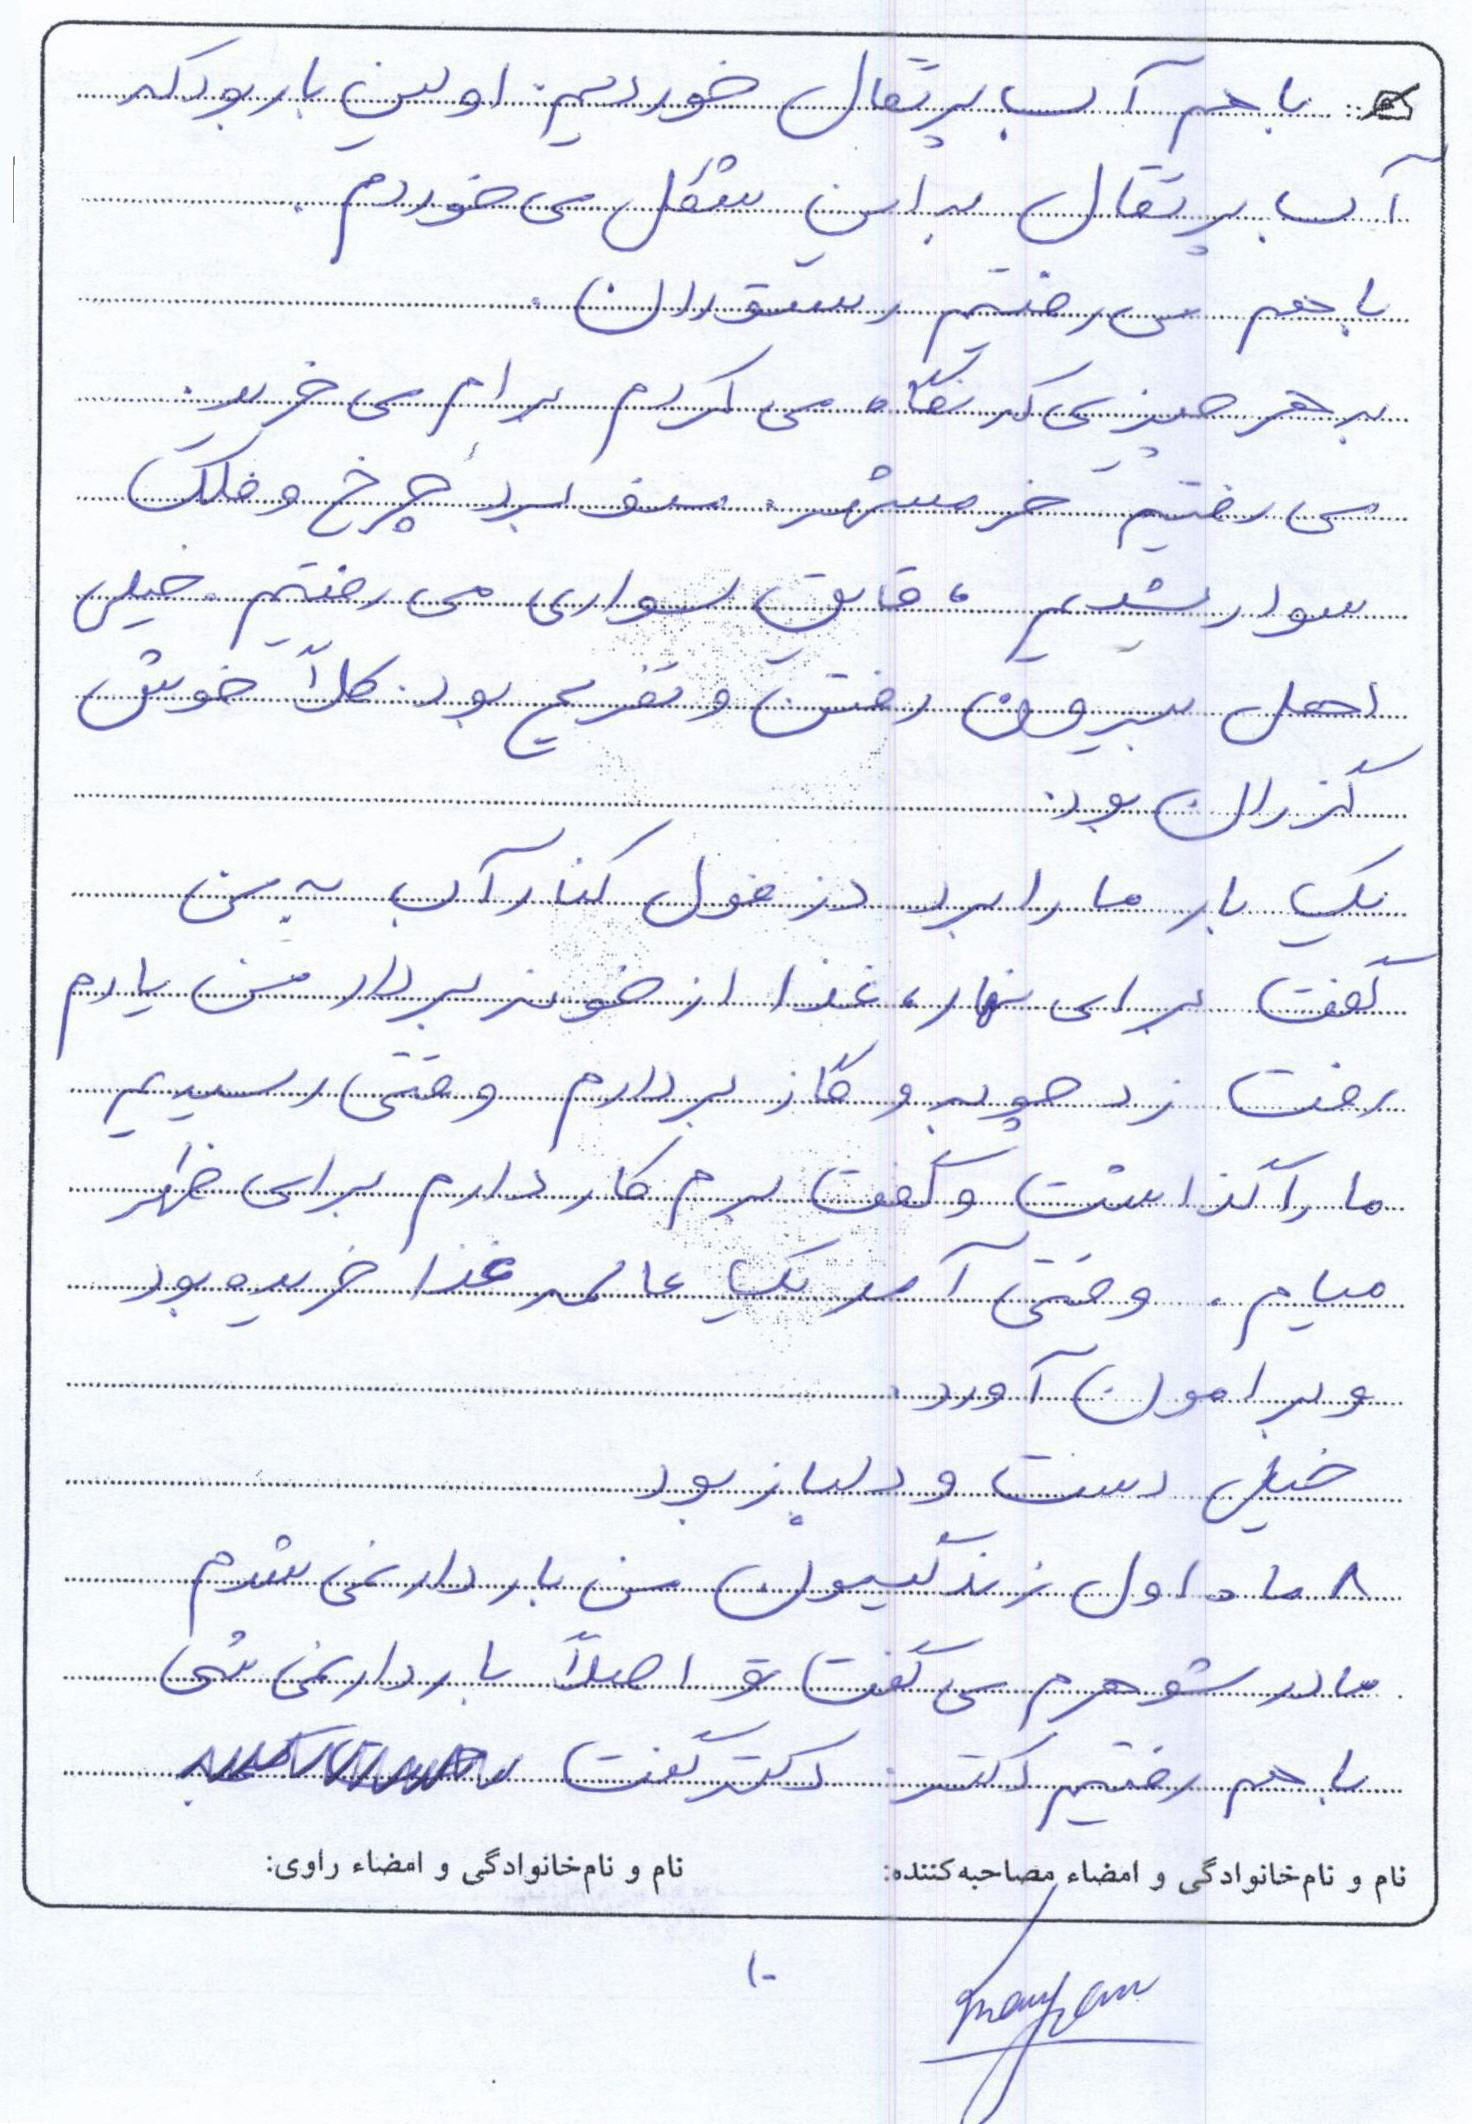 با هم آب پرتقال خوردیم. اولین بار بود که
آب پرتقال به این شکل می خوردم.
با هم می رفتیم رستوران.
به هر چیزی که نگاه می کردم برام می خرید.
می رفتیم خرمشهر. منو برد چرخ و فلک
سوار شدیم، قایق سواری می رفتیم. خیلی
اهل بیرون رفتن و تفریح بود. کلاً خوش
گذران بود.
یک بار ما را برد دزفول کنار آب به من
گفت برای نهار، غذا از خونه بردار من یادم
رفت زردچوبه و گاز بردارم وقتی رسیدیم
ما را گذاشت و گفت برم کار دارم برای ظهر
میام. وقتی آمد یک عالمه غذا خریده بود
و برامون آورد.
خیلی دست و دلباز بود
۸ ماه اول زندگیمون من باردار نمی شدم
مادر شوهرم می گفت تو اصلاً باردار نمی شی
با هم رفتیم دکتر. دکتر گفت
نام و نام‌خانوادگی و امضاء مصاحبه‌کننده: نام و نام‌خانوادگی و امضاء راوی:
۱۰